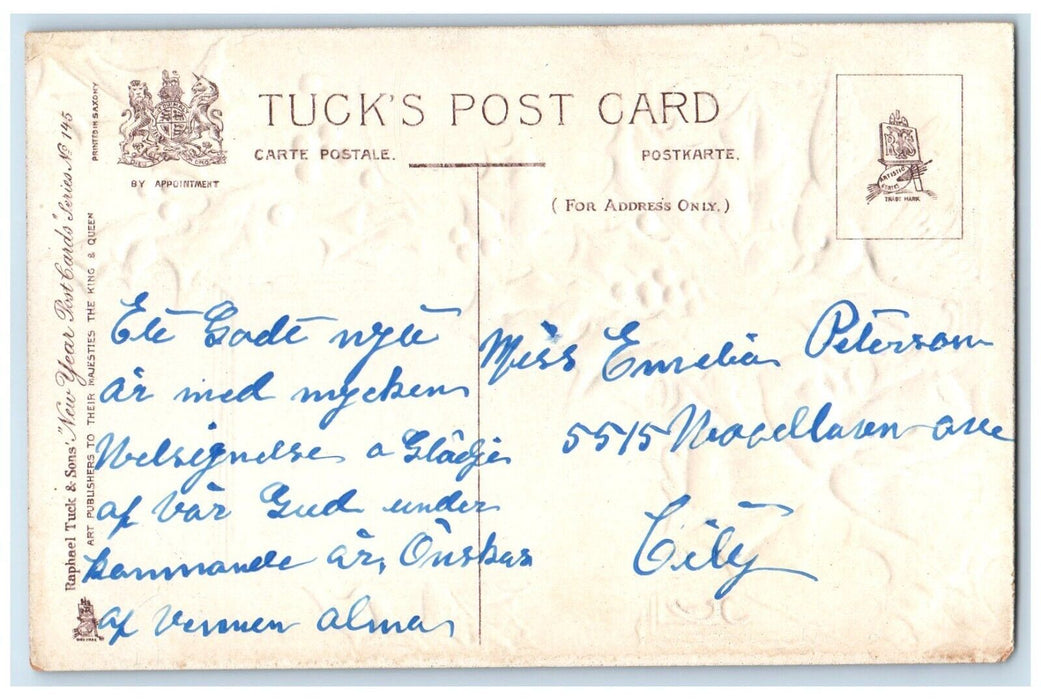 TUCK'S POST CARD
CARTE POSTALE.
POSTKARTE.
BY APPOINTMENT
(FOR ADDRESS ONLY.)
RTS
ARTISTIC
SERIES
TRADE MARK
PRINTED IN SAXONY
Raphael Tuck & Sons' "New Year Post Cards" Series No 145
ART PUBLISHERS TO THEIR MAJESTIES THE KING & QUEEN
Ett Godt nytt
år med mycken
Welsignelse o Glädje
af vår Gud under
kommande år, Önskas
af vennen alma
Miss Emelia Peterson
5515 ave
City